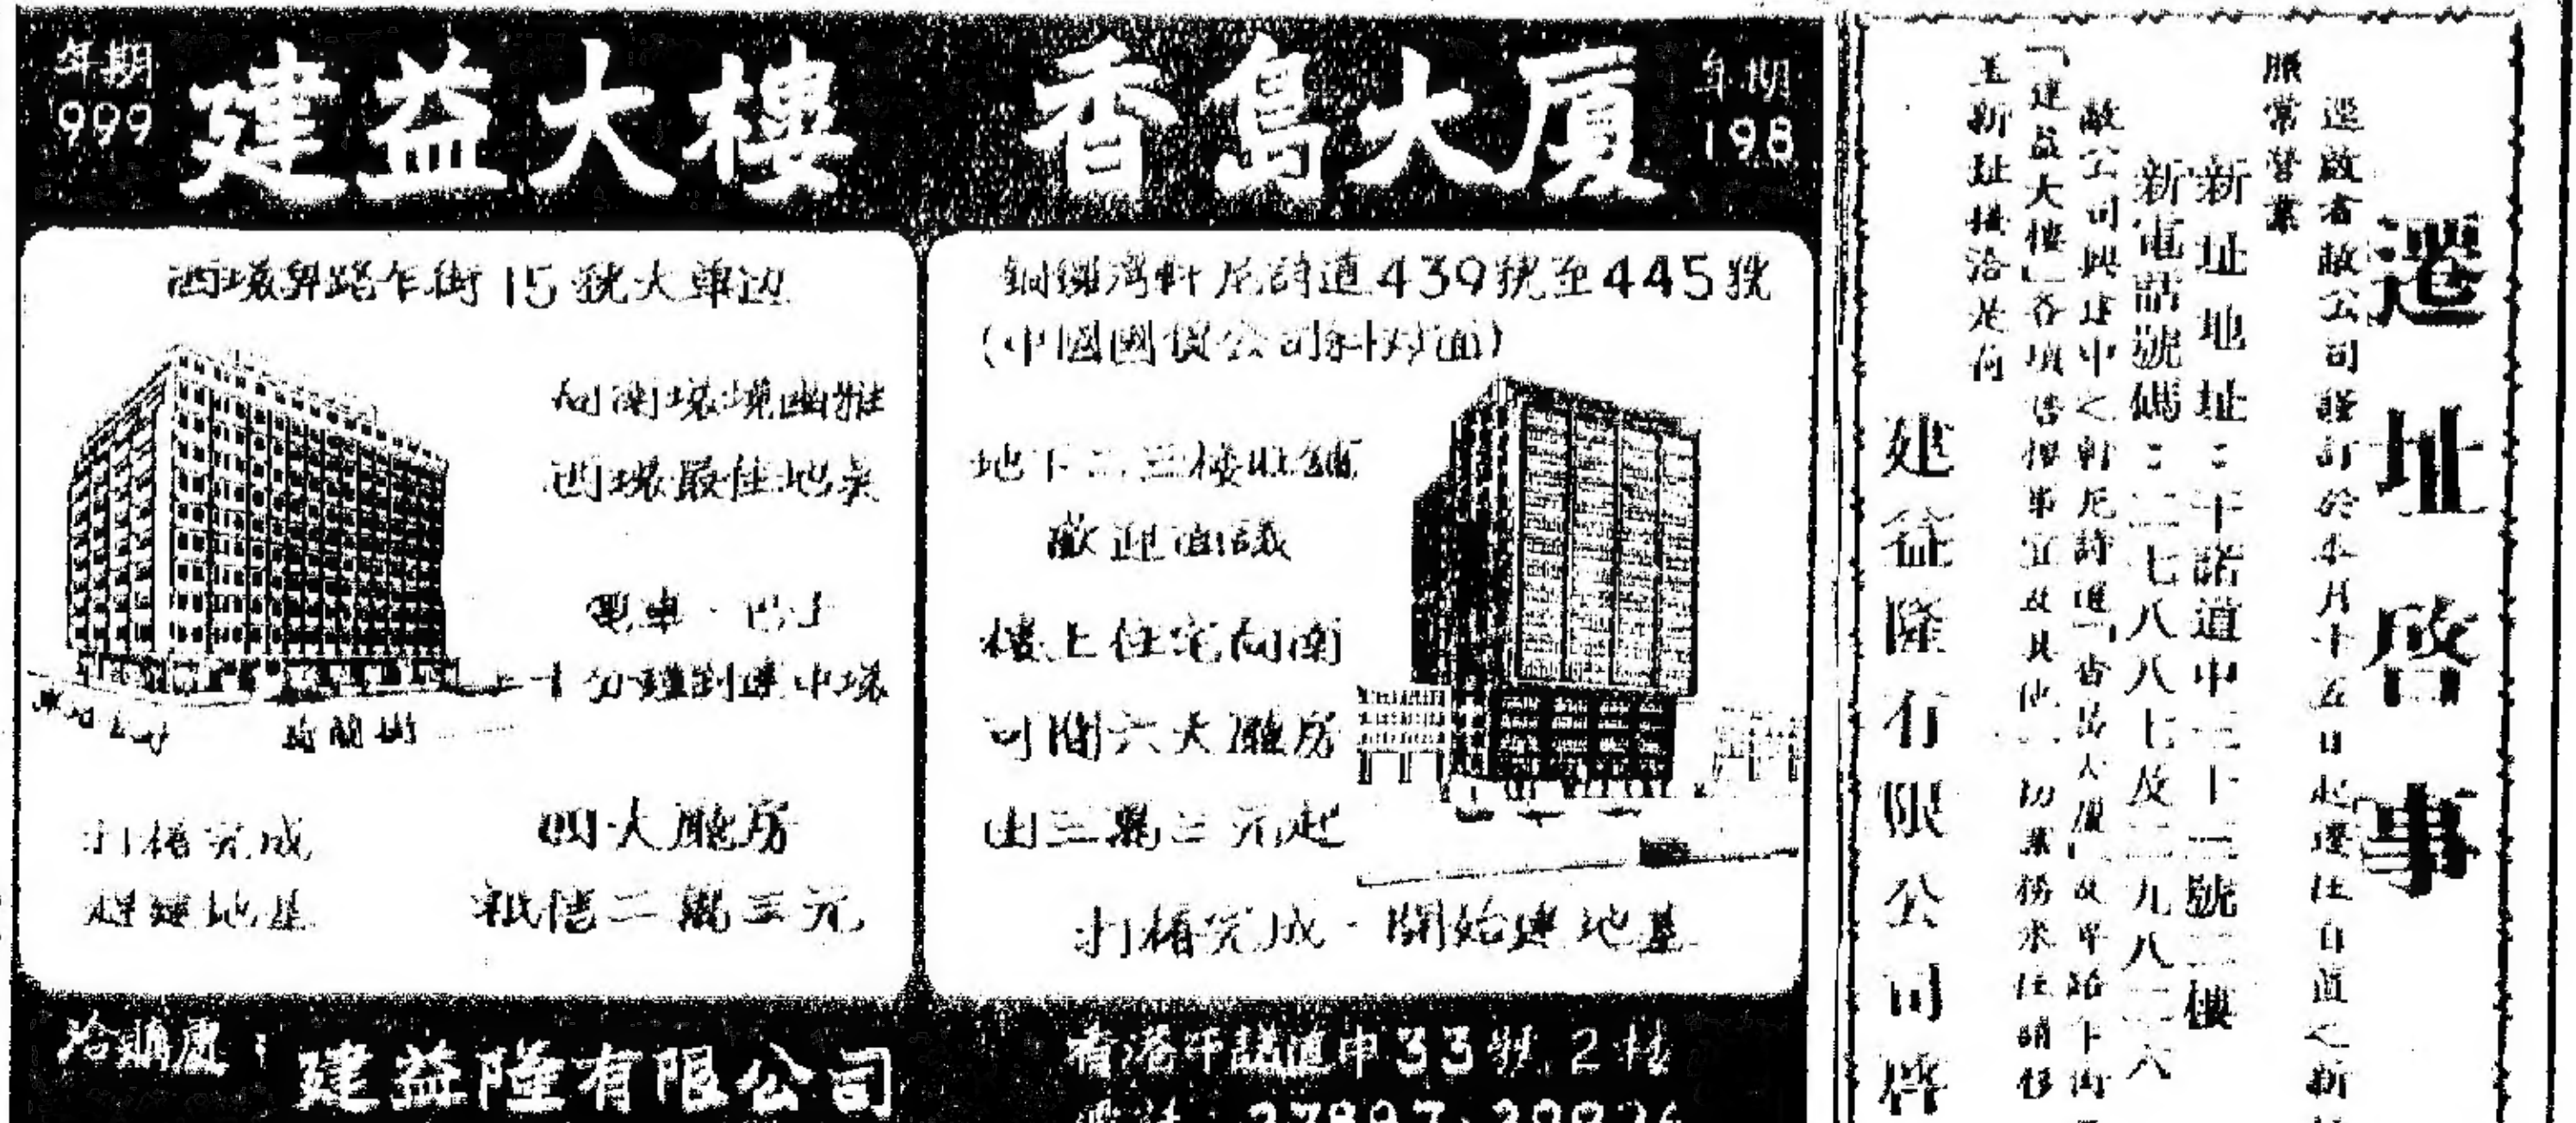 年期
999
建益大樓
西環卑路乍街15號大單边
向南環境幽雅
西環最佳地点
電車·巴士
十分鐘到達中環
打樁完成
趕建地基
四大廳房
祇售二萬三元
香島大厦
年期
198
銅鑼灣軒尼詩道439號至445號
(中國國貨公司斜对面)
地下二三樓旺舖
歡迎面議
樓上住宅向南
可間六大廳房
由三萬三元起
打樁完成·開始建地基
洽購處：
建益隆有限公司
香港干諾道中33號2樓
遷址啓事
逕啟者敝公司謹訂於本月十五日起遷往自置之新
照常營業
新址地址：干諾道中三十三號二樓
新電話號碼：二七八八七及二九八二六
敝公司興建中之軒尼詩道「香島大厦」及卑路乍街
「建益大樓」各項售樓事宜及其他一切業務求往請移
玉新址接洽是荷
建益隆有限公司啓